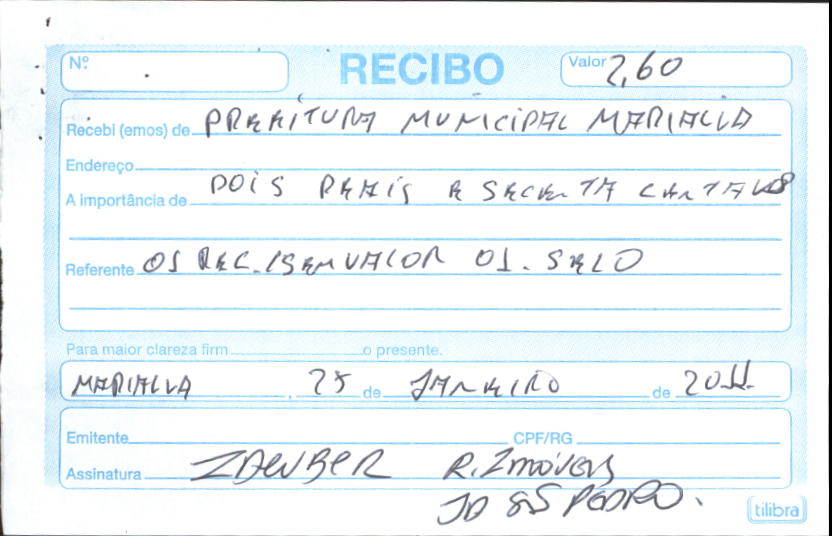 Nº
RECIBO
Valor 2,60
Recebi (emos) de PREFEITURA MUNICIPAL MARIALVA
Endereço
A importância de DOIS REAIS E SECENTA CENTAVOS
Referente 01 REC. 1 SEM VALOR 01. SELO
Para maior clareza firm o presente.
MARIALVA, 25 de JANEIRO de 2011.
Emitente CPF/RG
Assinatura R. Imóveis
JD PEDRO.
tilibra